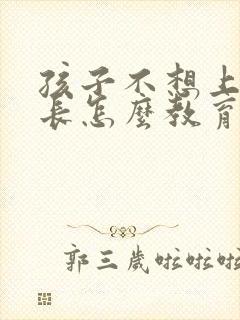 孩子不想上
長怎麼教育
郭三歲啦啦啦